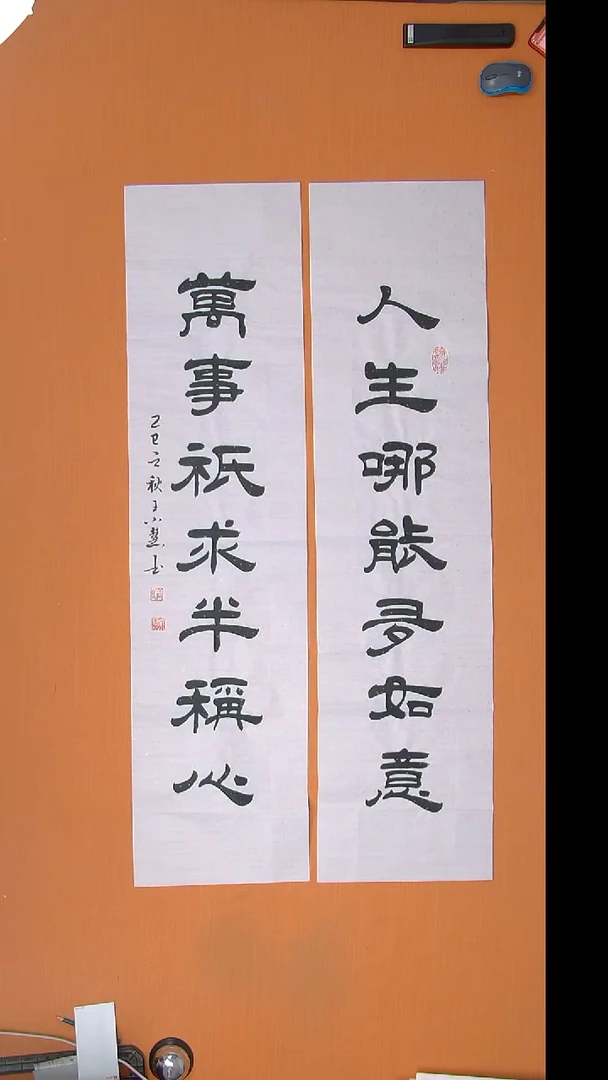 人生哪能多如意
萬事祇求半稱心
乙巳立秋于小慧书